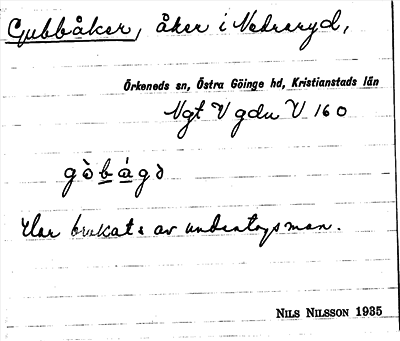 Gubbåker, åker i Nedraryd,
Örkeneds sn, Östra Göinge hd, Kristianstads län
Ngt V gdn V 160
gòbágd
Har brukats av undantagsman.
NILS NILSSON 1935